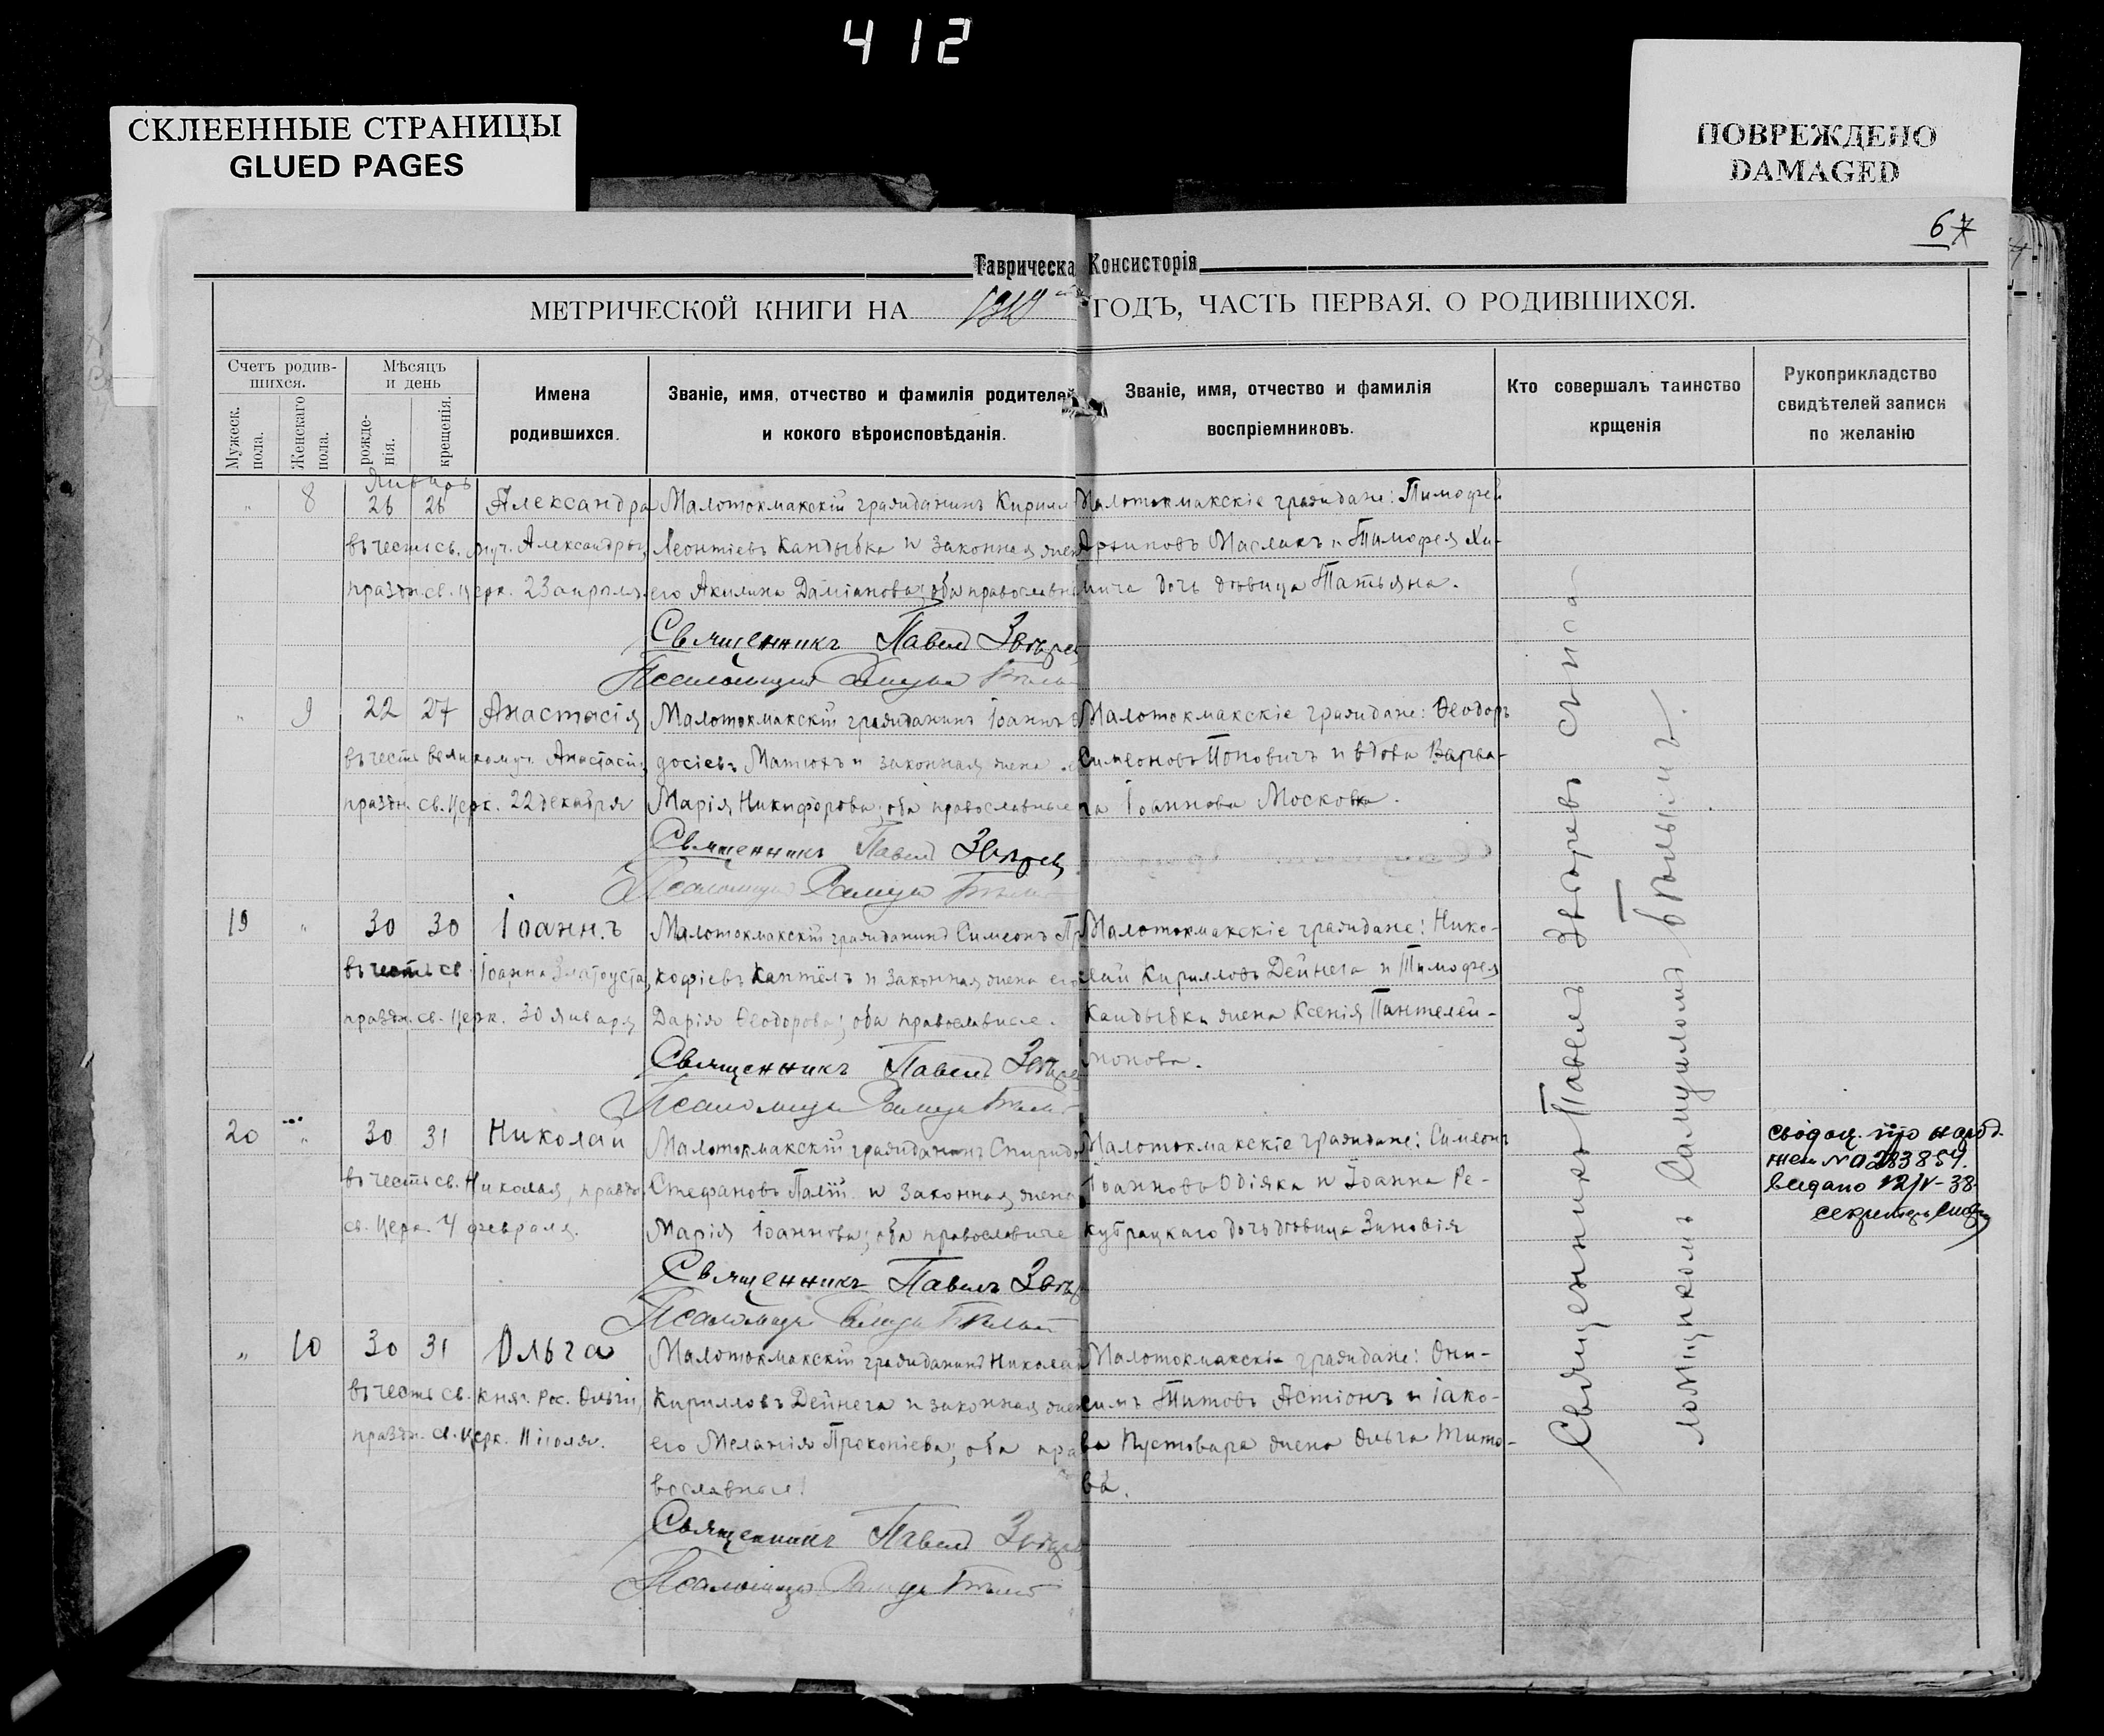 412
СКЛЕЕННЫЕ СТРАНИЦЫ
GLUED PAGES
ПОВРЕЖДЕНО
DAMAGED
67
Таврическа Консисторія
МЕТРИЧЕСКОЙ КНИГИ НА ГОДЪ, ЧАСТЬ ПЕРВАЯ, О РОДИВШИХСЯ.
Счетъ родив-
шихся.
Мужеск.
пола.
Женскаго
пола.
Мѣсяцъ
и день
рожде-
нія.
крещенія.
Имена
родившихся.
Званіе, имя, отчество и фамилія родителей
и кокого вѣроисповѣданія.
Званіе, имя, отчество и фамилія
воспріемниковъ.
Кто совершалъ таинство
крщенія
Рукоприкладство
свидѣтелей записи
по желанію
Январь
" 8 26 26 Александра
въ честь св. муч. Александры,
праздн. св. церк. 23 апрѣля.
Малотокмакскій гражданинъ Кирилл
Леонтіевъ Кандыбка и законная жена
его Акилина Даміанова; оба православные
Священникъ Павел Звѣрев
Псаломщик
Малотокмакскіе граждане: Тимофей
Архиповъ Маслакъ и Тимофея Хи-
мича дочь дѣвица Татьяна.
" 9 22 27 Анастасія
въ честь великомуч. Анастасіи,
праздн. св. Церк. 22 декабря
Малотокмакскій гражданинъ Іоаннъ
досіевъ Матюхъ и законная жена
Марія Никифорова; оба православные
Священникъ Павел Звѣрев
Псаломщик
Малотокмакскіе граждане: Ѳеодоръ
Симеоновъ Поповичъ и вдова Варва-
ра Іоаннова Московка.
19 " 30 30 Іоаннъ
въ честь св. Іоанна Златоуста,
праздн. св. Церк. 30 января
Малотокмакскій гражданинъ Симеонъ Пр
кофіевъ Каптёлъ и законная жена его
Дарія Ѳеодорова; оба православные.
Священникъ Павел Звѣрев
Псаломщик
Малотокмакскіе граждане: Нико-
лай Кирилловъ Дейнега и Тимофея
Кандыбки жена Ксенія Пантелей-
монова.
20 " 30 31 Николай
въ честь св. Николая, праздн.
св. Церк. 4 февраля.
Малотокмакскій гражданинъ Спиридо
Стефановъ Палій и законная жена
Марія Іоаннова; оба православные
Священникъ Павелъ Звѣр
Псаломщик
Малотокмакскіе граждане: Симеонъ
Іоанновъ Одіяка и Іоанна Ре-
кубрацкаго дочь дѣвица Зиновія
свідоц. про народ.
жен № 0283854.
видано 12/V-38.
секретарь
" 10 30 31 Ольга
въ честь св. княг. Рос. Ольги,
праздн. св. Церк. 11 іюля.
Малотокмакскій гражданинъ Николай
Кирилловъ Дейнега и законная жена
его Меланія Прокопіева; оба пра
вославные.
Священникъ Павел Звѣрев
Псаломщик
Малотокмакскіе граждане: Они-
симъ Титовъ Астіонъ и Іако-
ва Пустовара жена Ольга Тито-
ва.
Священникъ Павелъ Звѣревъ съ пса-
ломщикомъ Самуиломъ Бѣлымъ.